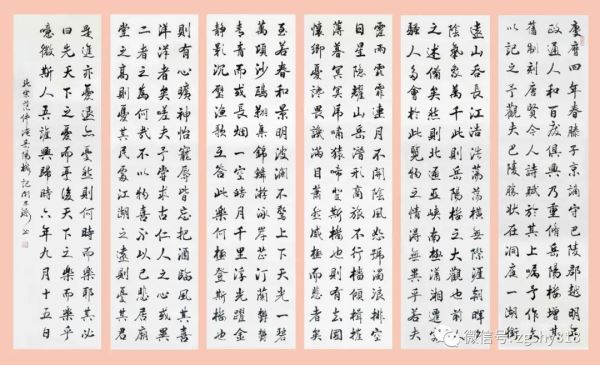 慶曆四年春滕子京謫守巴陵郡越明年
政通人和百廢俱興乃重修岳陽樓增其
舊制刻唐賢今人詩賦於其上囑予作文
以記之予觀夫巴陵勝狀在洞庭一湖銜
遠山吞長江浩浩蕩蕩橫無際涯朝暉夕
陰氣象萬千此則岳陽樓之大觀也前人
之述備矣然則北通巫峽南極瀟湘遷客
騷人多會於此覽物之情得無異乎若夫
霪雨霏霏連月不開陰風怒號濁浪排空
日星隱耀山岳潛形商旅不行檣傾楫摧
薄暮冥冥虎嘯猿啼登斯樓也則有去國
懷鄉憂讒畏譏滿目蕭然感極而悲者矣
至若春和景明波瀾不驚上下天光一碧
萬頃沙鷗翔集錦鱗游泳岸芷汀蘭鬱鬱
青青而或長煙一空皓月千里浮光躍金
靜影沉璧漁歌互答此樂何極登斯樓也
則有心曠神怡寵辱皆忘把酒臨風其喜
洋洋者矣嗟夫予嘗求古仁人之心或異
二者之為何哉不以物喜不以己悲居廟
堂之高則憂其民處江湖之遠則憂其君
是進亦憂退亦憂然則何時而樂耶其必
曰先天下之憂而憂後天下之樂而樂乎
噫微斯人吾誰與歸時六年九月十五日
范仲淹岳陽樓記
微信号: zgshy818